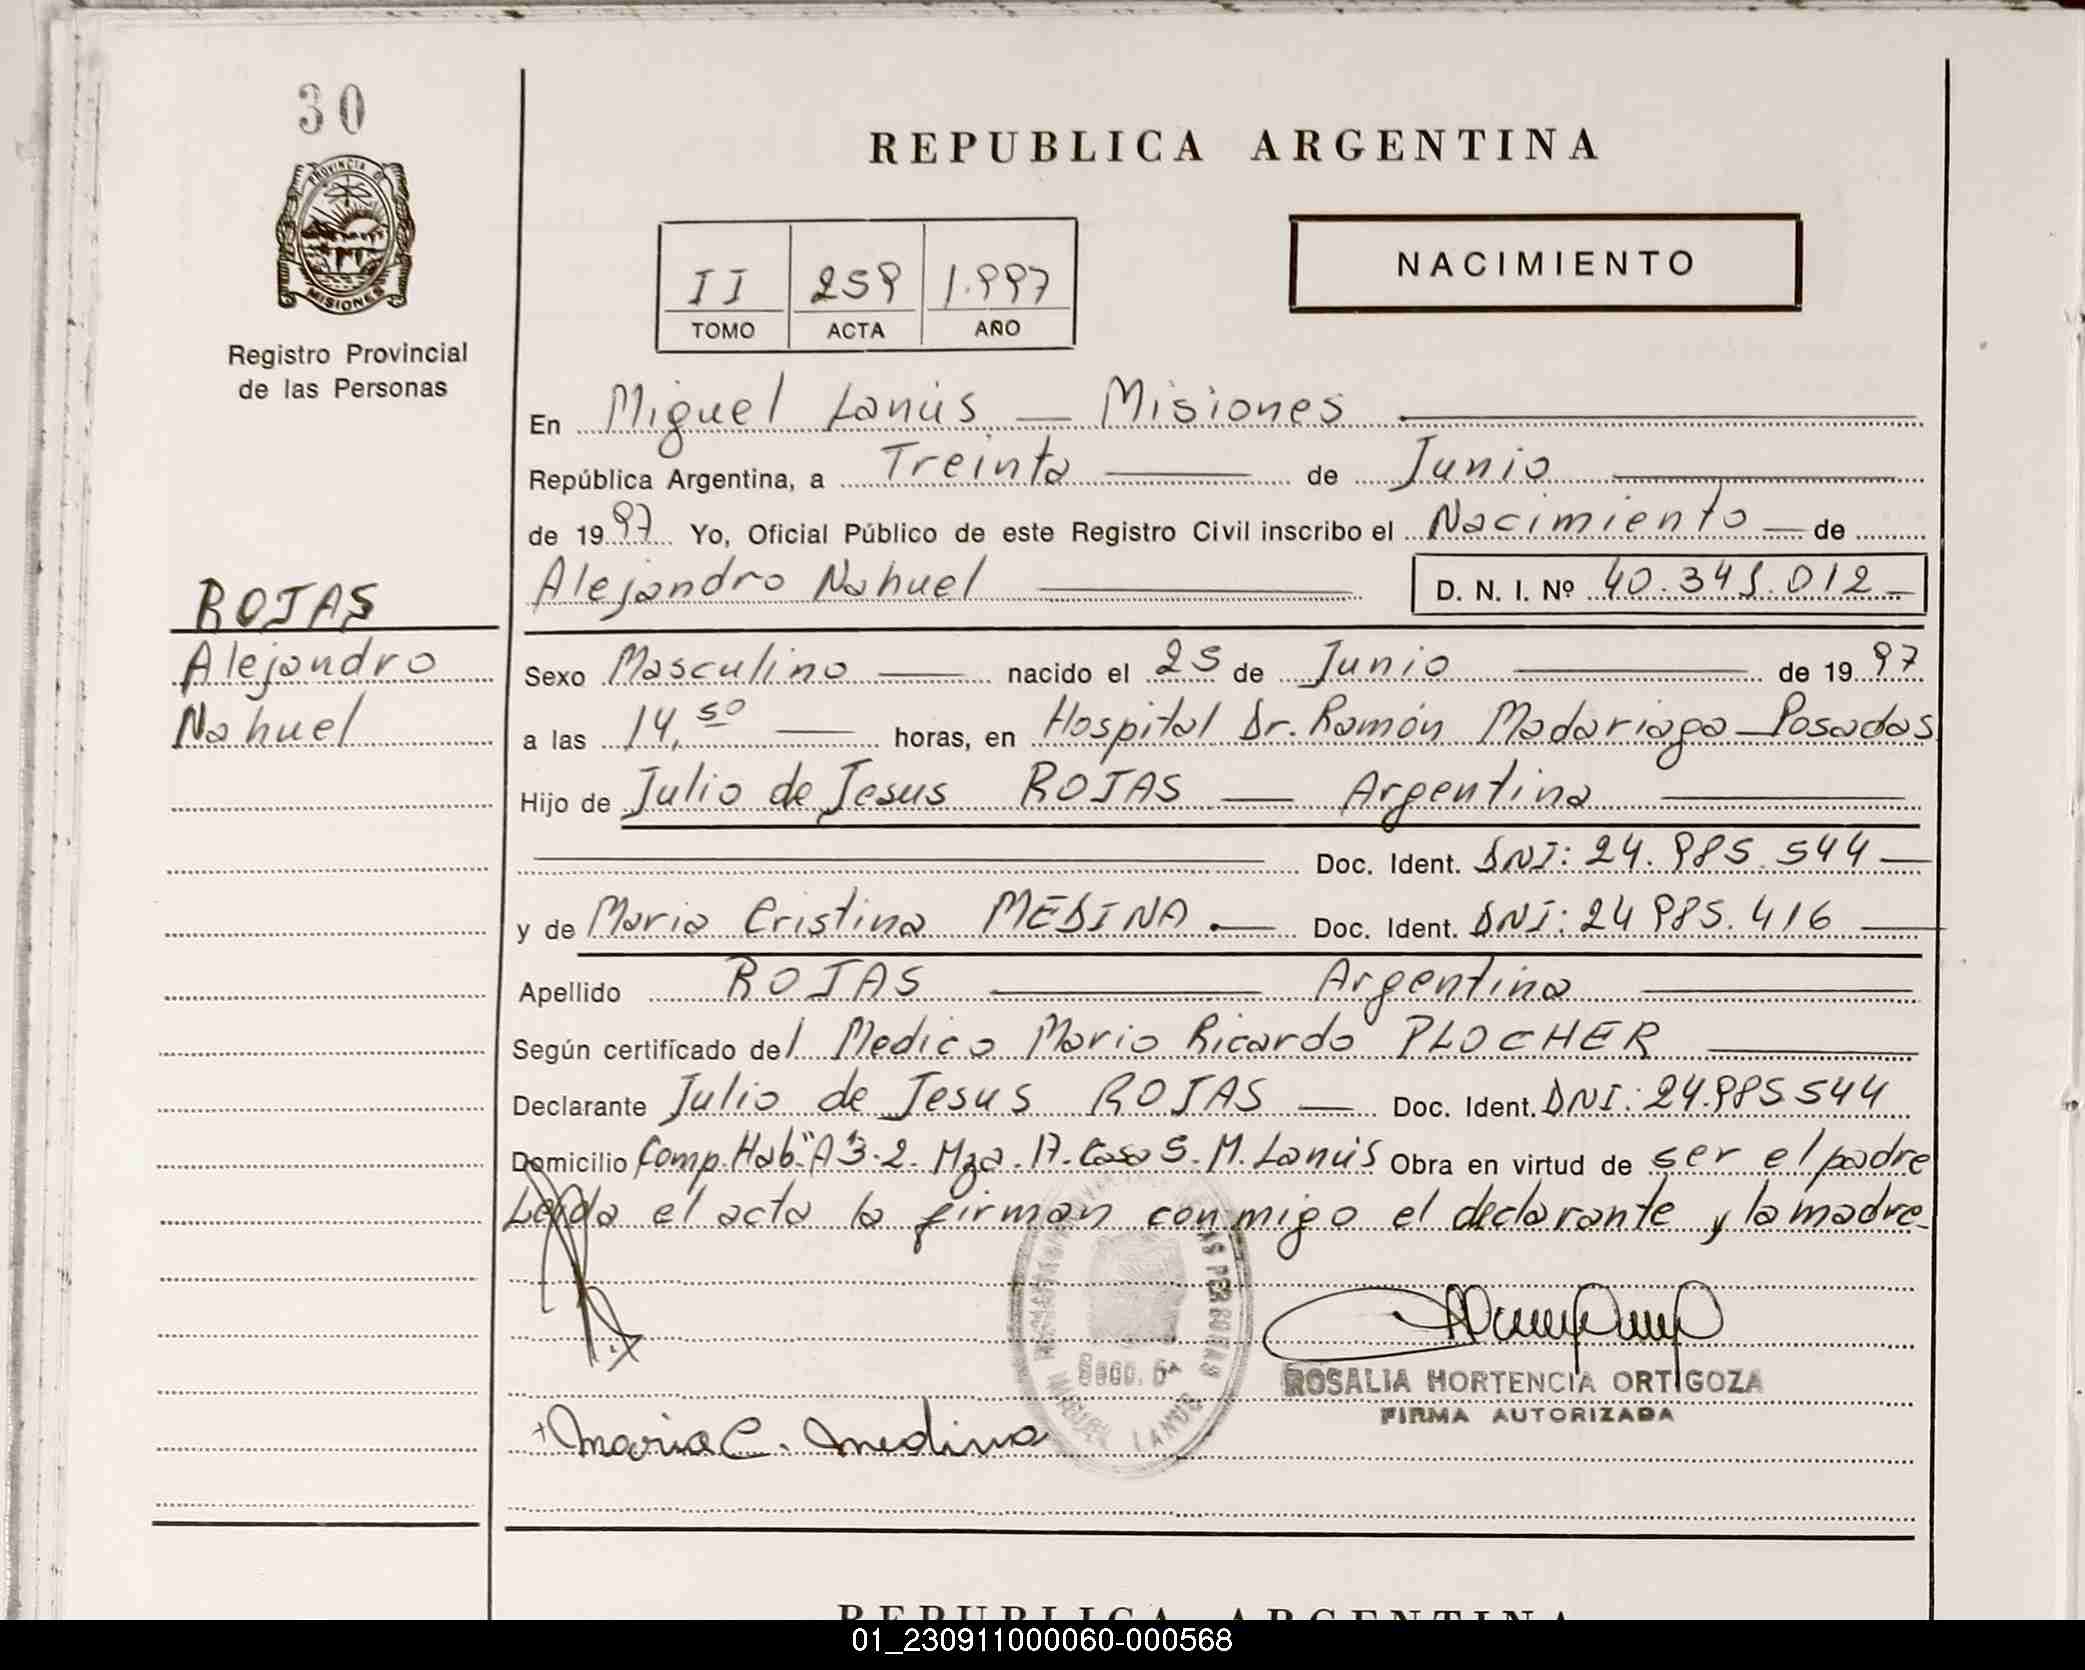 30
PROVINCIA DE
MISIONES
Registro Provincial
de las Personas
REPUBLICA ARGENTINA
II 259 1.997
TOMO ACTA AÑO
NACIMIENTO
En Miguel Lanús — Misiones
República Argentina, a Treinta de Junio
de 1997 Yo, Oficial Público de este Registro Civil inscribo el Nacimiento — de
Alejandro Nahuel D. N. I. Nº 40.341.012
ROJAS
Alejandro
Nahuel
Sexo Masculino nacido el 25 de Junio de 1997
a las 14,50 horas, en Hospital Dr. Ramón Madariaga — Posadas
Hijo de Julio de Jesus ROJAS — Argentina
Doc. Ident. DNI: 24.985.544
y de Maria Cristina MEDINA. — Doc. Ident. DNI: 24 985.416
Apellido ROJAS Argentina
Según certificado del Medico Mario Ricardo PLOCHER
Declarante Julio de Jesus ROJAS — Doc. Ident. DNI: 24.985.544
Domicilio Comp. Hab. "A" 3-2. Mza. 17. Casa 5. M. Lanús Obra en virtud de ser el padre
Leida el acta la firman conmigo el declarante y la madre
ROSALIA HORTENCIA ORTIGOZA
FIRMA AUTORIZADA
Maria C. Medina
MIGUEL LANUS
REPUBLICA ARGENTINA
01_230911000060-000568